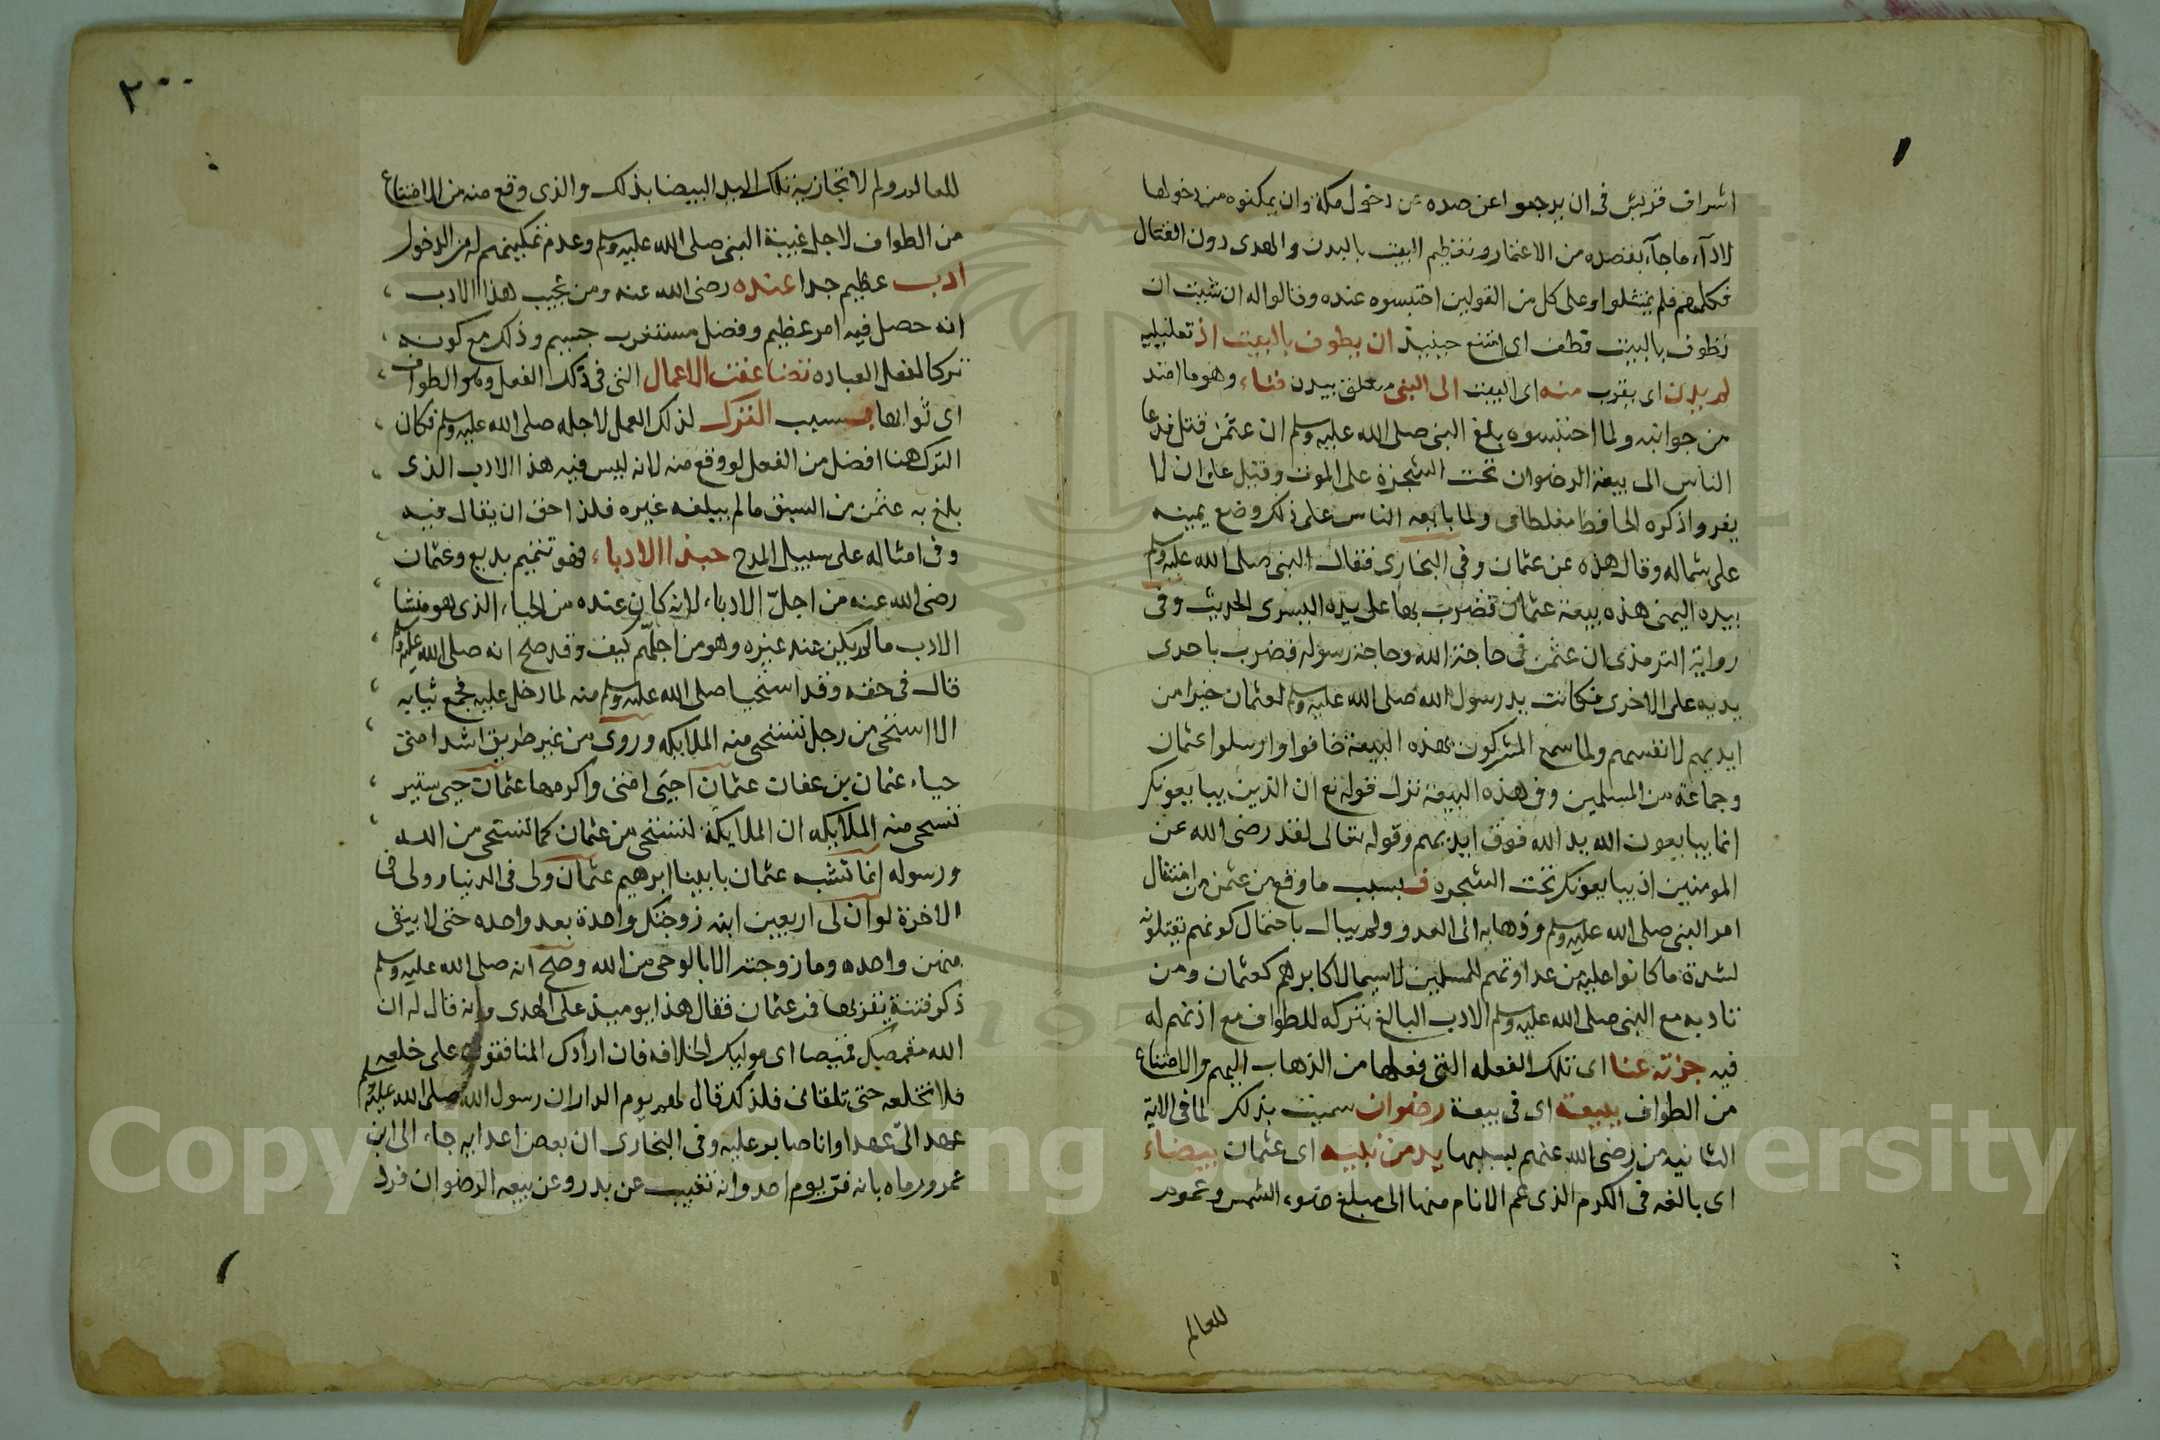 اشراف قريش فى ان يرجعوا عن صده عن دخول مكة وان يمكنوه من دخولها
لاداء ما جاء بقصده من الاعتمار وتعظيم البيت بالبدن والهدى دون القتال
فكلمهم فلم يمتثلوا وعلى كل من القولين احتبسوه عنده وقالوا له ان شيت ان
تطوف بالبيت فطف اى امتنع حينيذ ان يطوف بالبيت اذ تعليليه
لم يدن اى يقرب منه اى البيت الى النبى متعلق بيدن فناء وهو ما امتد
من جوانبه ولما احتبسوه بلغ النبى صلى الله عليه وسلم ان عثمن قتل فدعا
الناس الى بيعة الرضوان تحت الشجرة على الموت وقيل على ان لا
يفروا ذكره الحافظ مغلطاى ولما بايعه الناس على ذلك وضع يمينه
على شماله وقال هذه عن عثمان وفى البخارى فقال النبى صلى الله عليه وسلم
بيده اليمنى هذه بيعة عثمان فضرب بها على يده اليسرى الحديث وفى
رواية الترمذى ان عثمن فى حاجة الله وحاجة رسوله فضرب باحدى
يديه على الاخرى فكانت يد رسول الله صلى الله عليه وسلم لعثمان خيرا من
ايديهم لانفسهم ولما سمع المشركون بهذه البيعة خافوا وارسلوا عثمان
وجماعة من المسلمين وفى هذه البيعة نزل قوله تع ان الذين يبايعونك
انما يبايعون الله يد الله فوق ايديهم وقوله تعالى لقد رضى الله عن
المومنين اذ يبايعونك تحت الشجره ف بسبب ما وقع من عثمن من امتثال
امر النبى صلى الله عليه وسلم وذهابه الى العدو ولم يبال باحتمال كونهم يقتلونه
لشدة ما كانوا عليه من عداوتهم للمسلمين لاسيما لاكابرهم كعثمان ومن
تادبه مع النبى صلى الله عليه وسلم الادب البالغ بتركه للطواف مع اذنهم له
فيه جزته عنا اى تلك الفعله التى فعلها من الذهاب اليهم والامتناع
من الطواف ببيعة اى فى بيعة رضوان سميت بذلك لما فى الاية
الثانيه من رضى الله عنهم بسببها يد من نبيه اى عثمان بيضاء
اى بالغه فى الكرم الذى عم الانام منها الى مبلغ ضوء الشمس وعموم
للعالم
٢٠٠
للعالم ولم لا تجازيه تلك اليد البيضا بذلك والذى وقع منه من الامتناع
من الطواف لاجل غيبة النبى صلى الله عليه وسلم وعدم تمكينهم له من الدخول
ادب عظيم جدا عنده رضى الله عنه ومن عجيب هذا الادب
انه حصل فيه امر عظيم وفضل مستغرب جسيم وذلك مع كونه
تركا لفعل العباده تضاعفت الاعمال التى فى ذلك الفعل وهو الطواف
اى ثوابها بسبب الترك لذلك العمل لاجله صلى الله عليه وسلم فكان
الترك هنا افضل من الفعل لو وقع منه لانه ليس فيه هذا الادب الذى
بلغ به عثمن من السبق ما لم يبلغه غيره فلذا حق ان يقال فيه
وفى امثاله على سبيل المدح حبذا الادباء فهو تتميم بديع وعثمان
رضى الله عنه من اجل الادباء لانه كان عنده من الحياء الذى هو منشا
الادب ما لم يكن عند غيره وهو من اجلهم كيف وقد صلح انه صلى الله عليه وسلم
قال فى حقه وقد استحيا صلى الله عليه وسلم منه لما دخل عليه فجمع ثيابه
الا استحى من رجل تستحى منه الملايكه وروى من غير طريق اشد امتى
حياء عثمان بن عفان عثمان احيى امتى واكرمها عثمان حيى ستير
تستحى منه الملايكه ان الملايكة لتستحى من عثمان كما تستحى من الله
ورسوله انما نشبه عثمان بابينا ابرهيم عثمان ولى فى الدنيا وولى فى
الاخرة لو ان لى اربعين ابنه زوجتك واحدة بعد واحده حتى لا يبقى
منهن واحده وما زوجته الا بالوحى من الله وصح انه صلى الله عليه وسلم
ذكر فتنة يقربها فمر عثمان فقال هذا يوميذ على الهدى وانه قال له ان
الله مقمصك قميصا اى موليك الخلافه فان ارادك المنافقون على خلعه
فلا تخلعه حتى تلقانى فلذلك قال لهم يوم الدار ان رسول الله صلى الله عليه وسلم
عهد الى عهدا وانا صابر عليه وفى البخارى ان بعض اعدايه جاء الى ابن
عمر ورماه بانه فر يوم احد وانه تغيب عن بدر وعن بيعه الرضوان فرد
Copyright © King Saud University